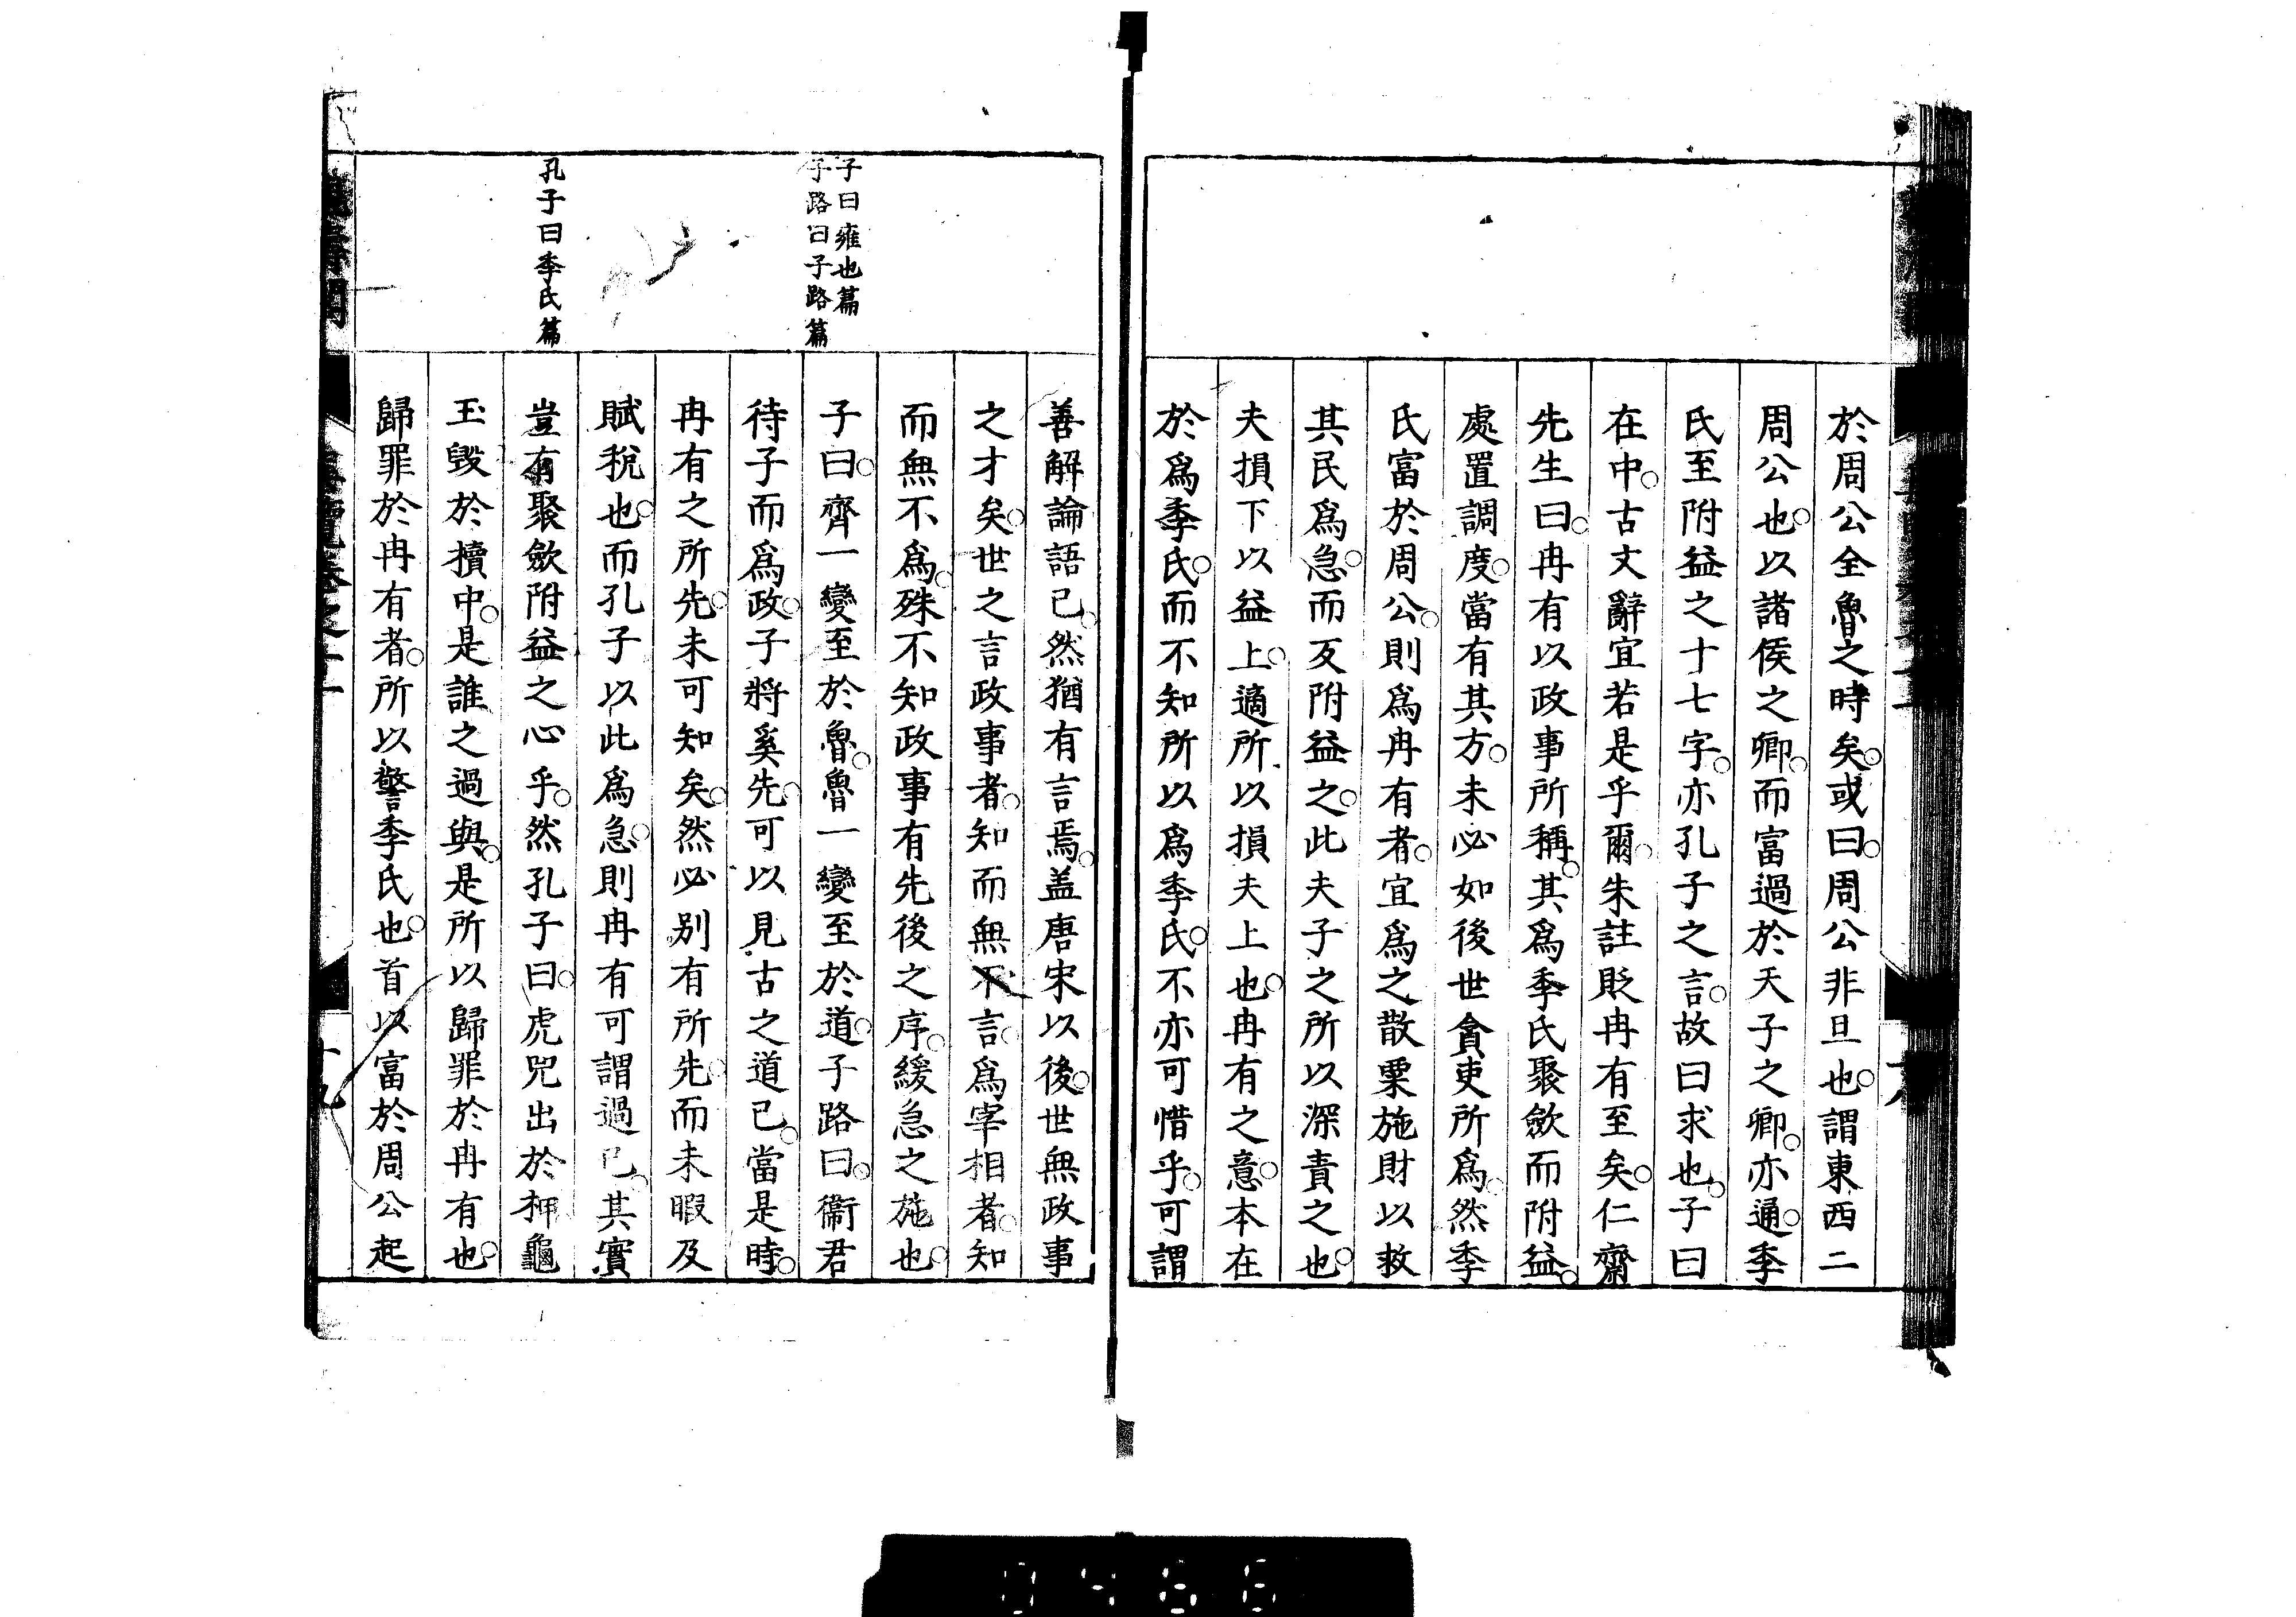 於周公全魯之時矣。或曰。周公非旦也。謂東西二
周公也。以諸侯之卿。而富過於天子之卿。亦通。季
氏至附益之十七字。亦孔子之言。故曰求也。子曰
在中。古文辭宜若是乎爾。朱註貶冉有至矣。仁齋
先生曰。冉有以政事所稱。其爲季氏聚歛而附益。
處置調度。當有其方。未必如後世貪吏所爲。然季
氏富於周公。則爲冉有者。宜爲之散粟施財以救
其民爲急。而反附益之。此夫子之所以深責之也。
夫損下以益上。適所以損夫上也。冉有之意。本在
於爲季氏。而不知所以爲季氏。不亦可惜乎。可謂
善解論語已。然猶有言焉。盖唐宋以後。世無政事
之才矣。世之言政事者。知而無不言。爲宰相者。知
而無不爲。殊不知政事有先後之序。緩急之施也。
子曰雍也篇
子路曰子路篇
子曰。齊一變至於魯。魯一變至於道。子路曰。衞君
待子而爲政。子將奚先。可以見古之道已。當是時。
冉有之所先。未可知矣。然必別有所先。而未暇及
賦稅也。而孔子以此爲急。則冉有可謂過已。其實
孔子曰季氏篇
豈有聚歛附益之心乎。然孔子曰。虎兕出於柙。龜
玉毀於櫝中。是誰之過與。是所以歸罪於冉有也。
歸罪於冉有者。所以警季氏也。首以富於周公起